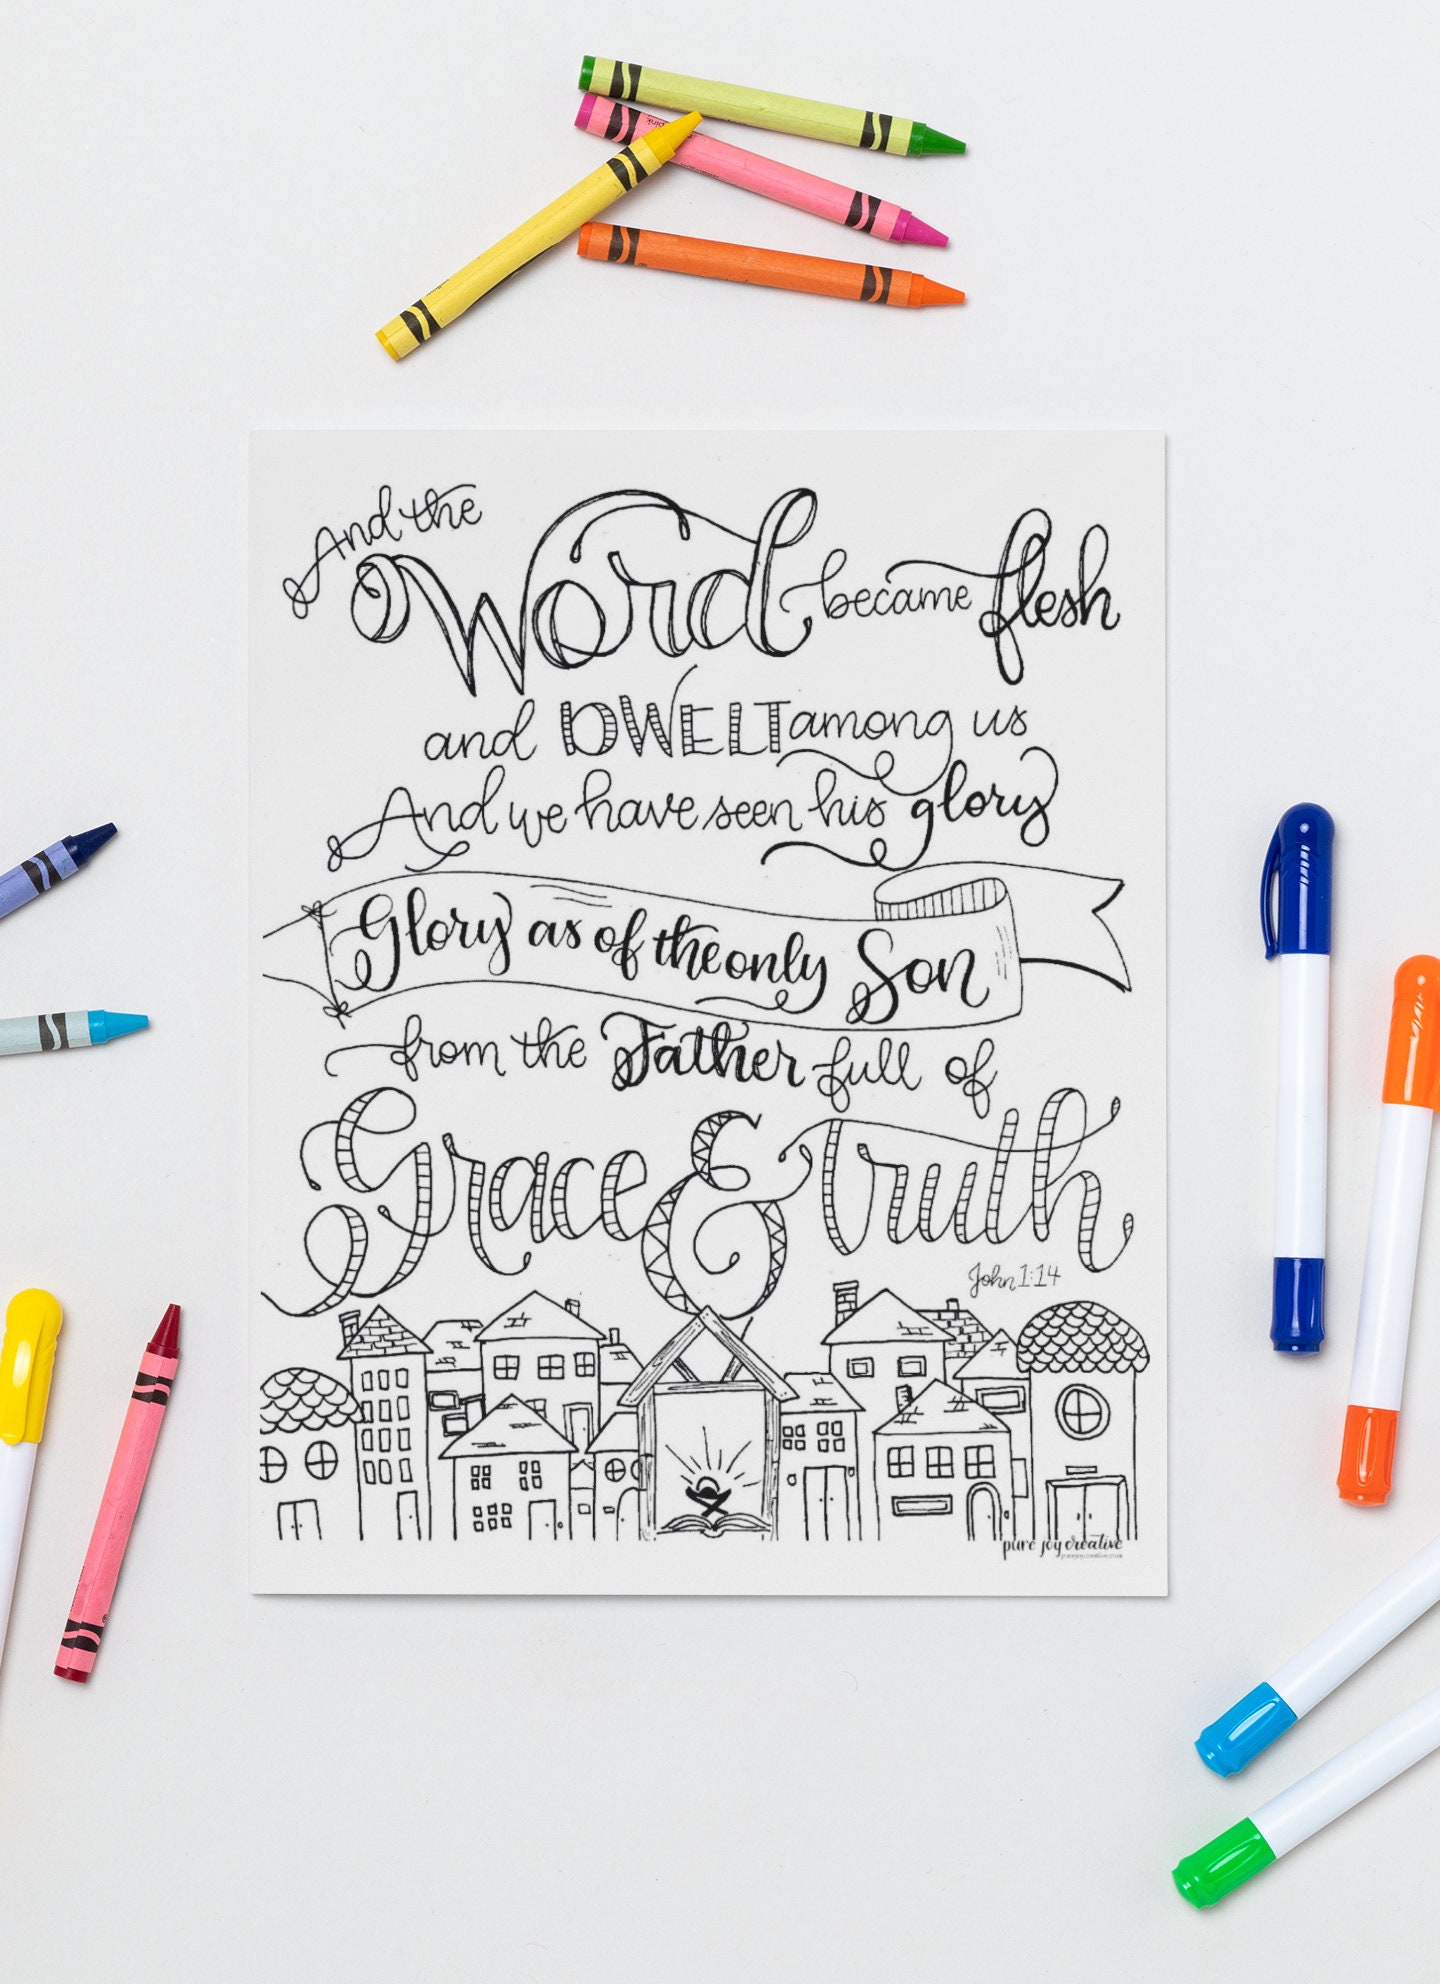 And the Word became flesh
and DWELT among us
And we have seen his glory
Glory as of the only Son
from the Father full of
Grace & truth
John 1:14
pure joy creative
pink